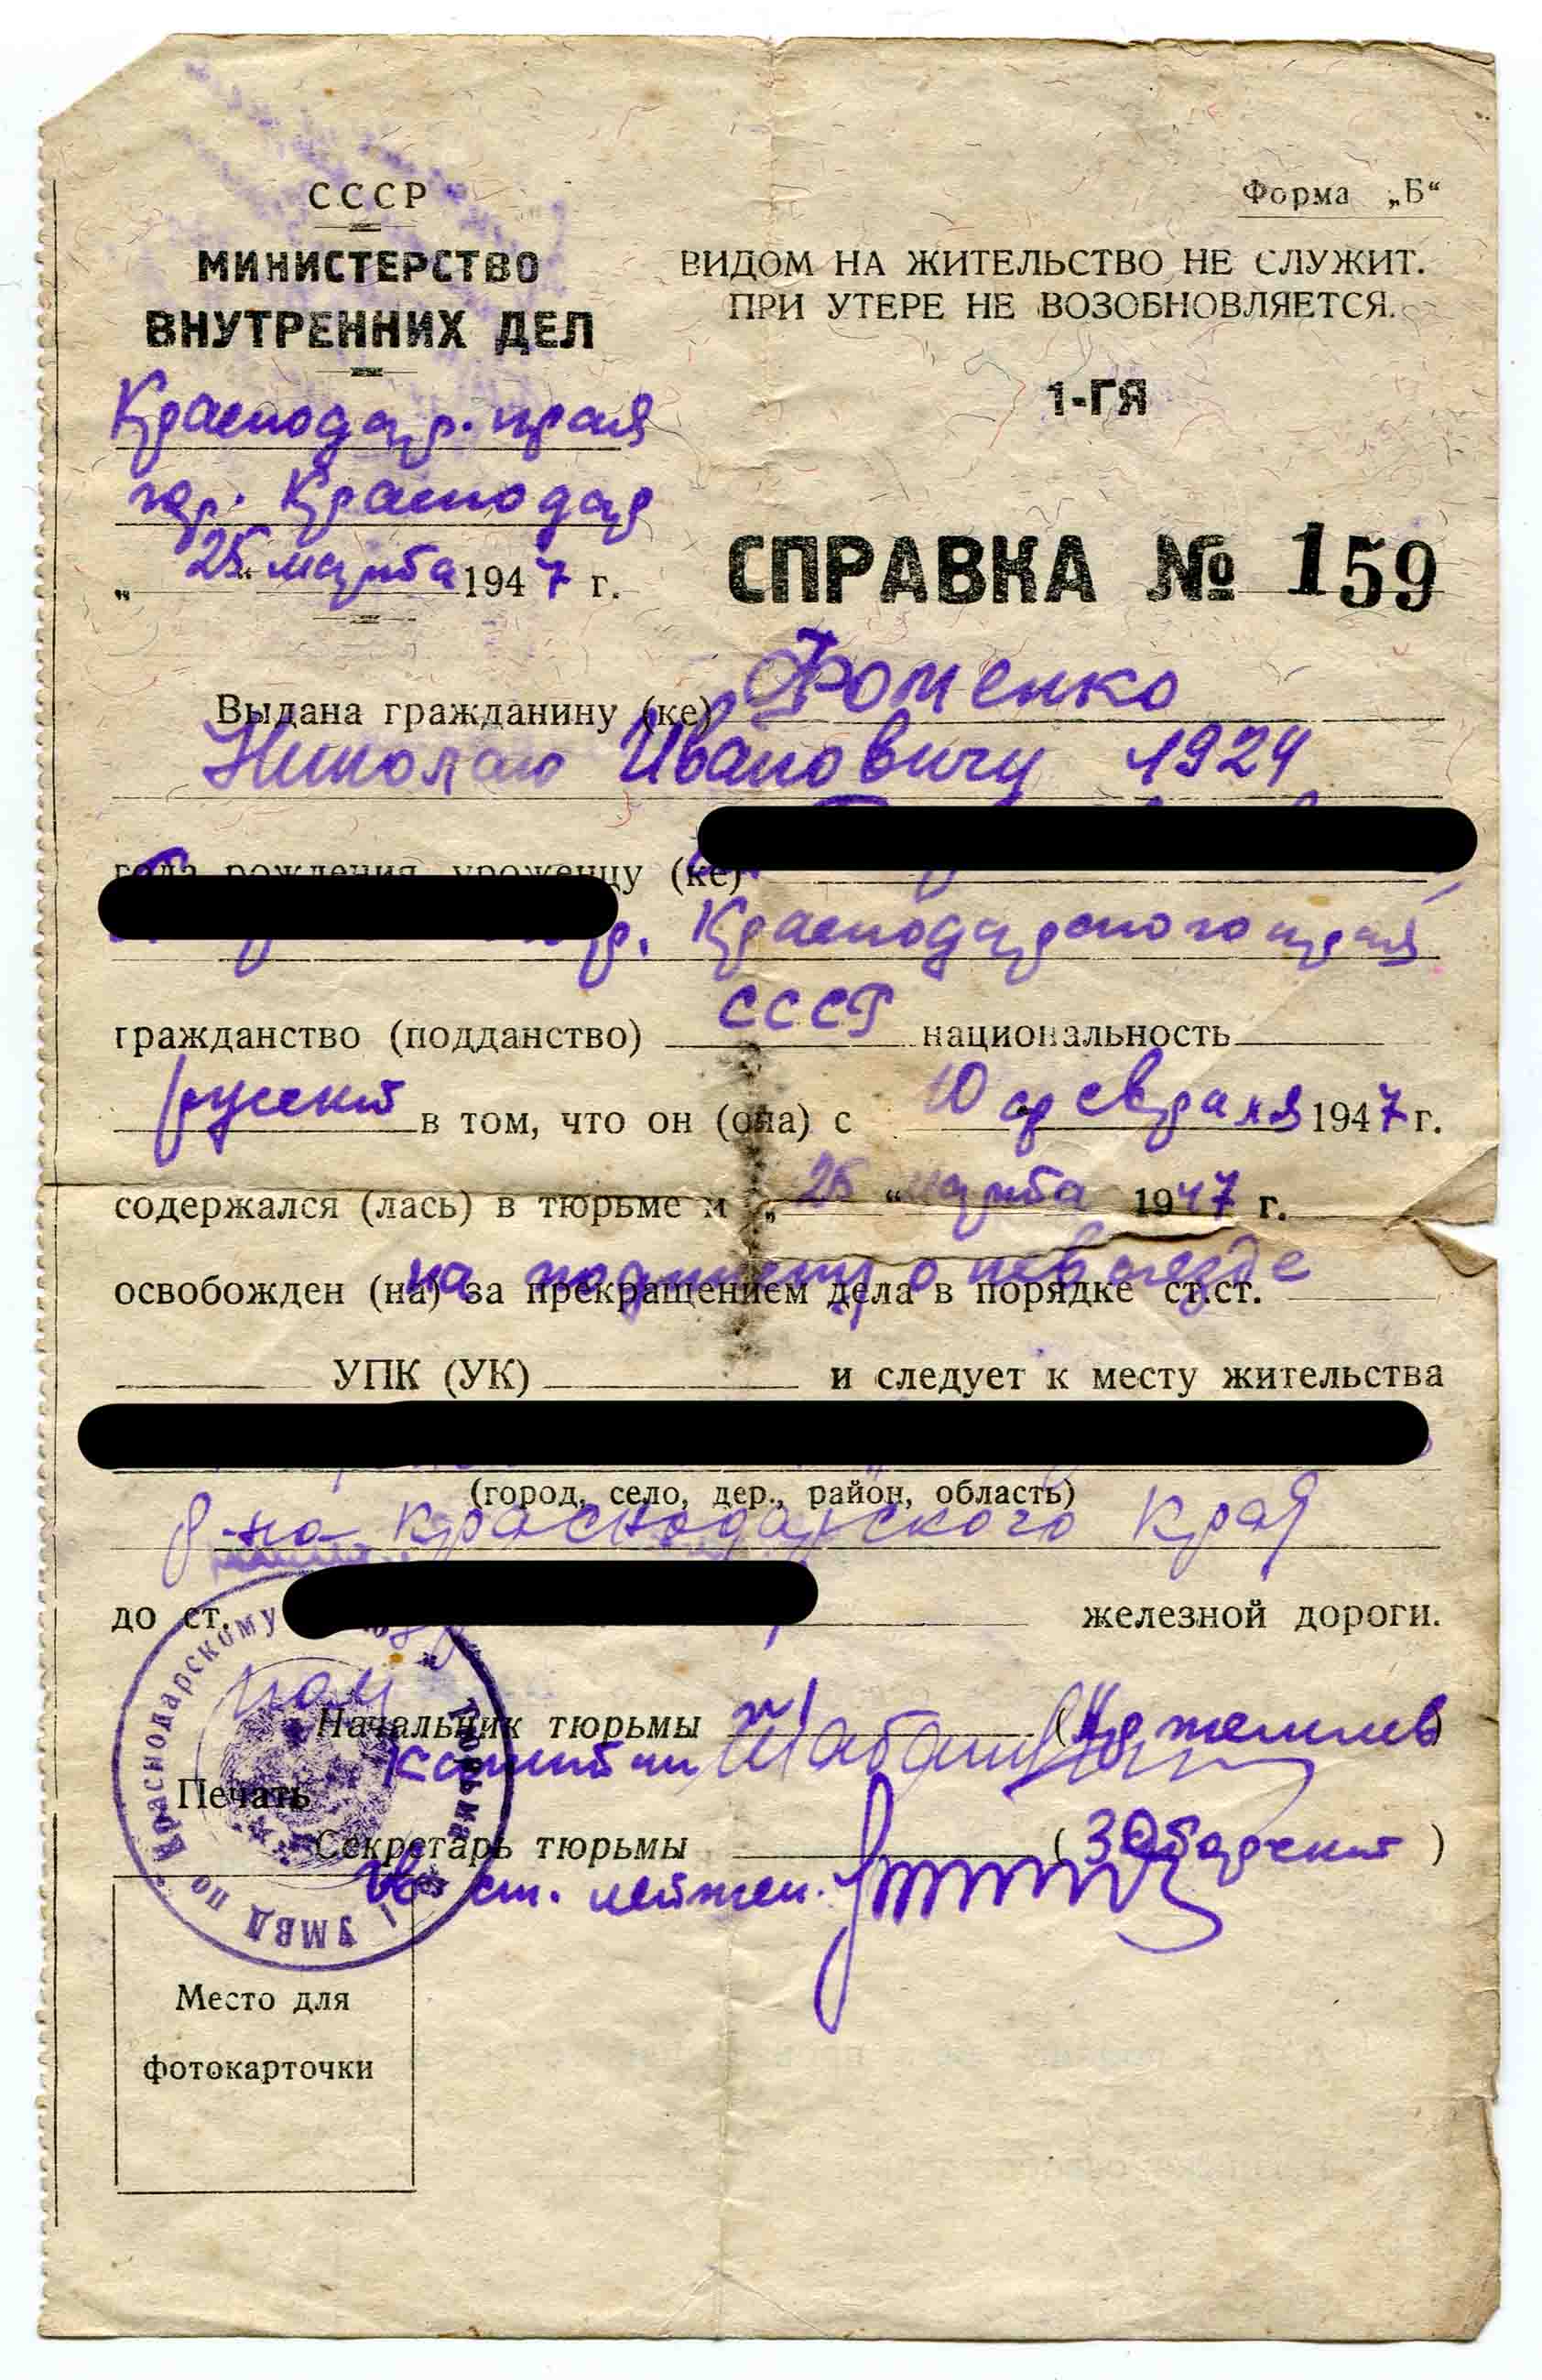 СССР
МИНИСТЕРСТВО
ВНУТРЕННИХ ДЕЛ
Краснодар. края
гор. Краснодар
„25“ марта 1947 г.
Форма „Б“
ВИДОМ НА ЖИТЕЛЬСТВО НЕ СЛУЖИТ.
ПРИ УТЕРЕ НЕ ВОЗОБНОВЛЯЕТСЯ.
1-ГЯ
СПРАВКА № 159
Выдана гражданину (ке) Фоменко
Николаю Ивановичу 1924
года рождения, уроженцу (ке)
Краснодарского края
гражданство (подданство) СССР национальность
русский в том, что он (она) с 10 февраля 1947 г.
содержался (лась) в тюрьме и „25“ марта 1947 г.
на подписку о невыезде
освобожден (на) за прекращением дела в порядке ст.ст.
УПК (УК) и следует к месту жительства
(город, село, дер., район, область)
р-на Краснодарского края
до ст. железной дороги.
Начальник тюрьмы
капитан
Печать
Секретарь тюрьмы
ст. лейтен.
УМВД по Краснодарскому
Тюрьма
Место для
фотокарточки